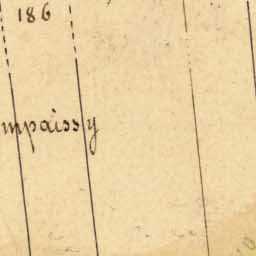 186
mpaissy